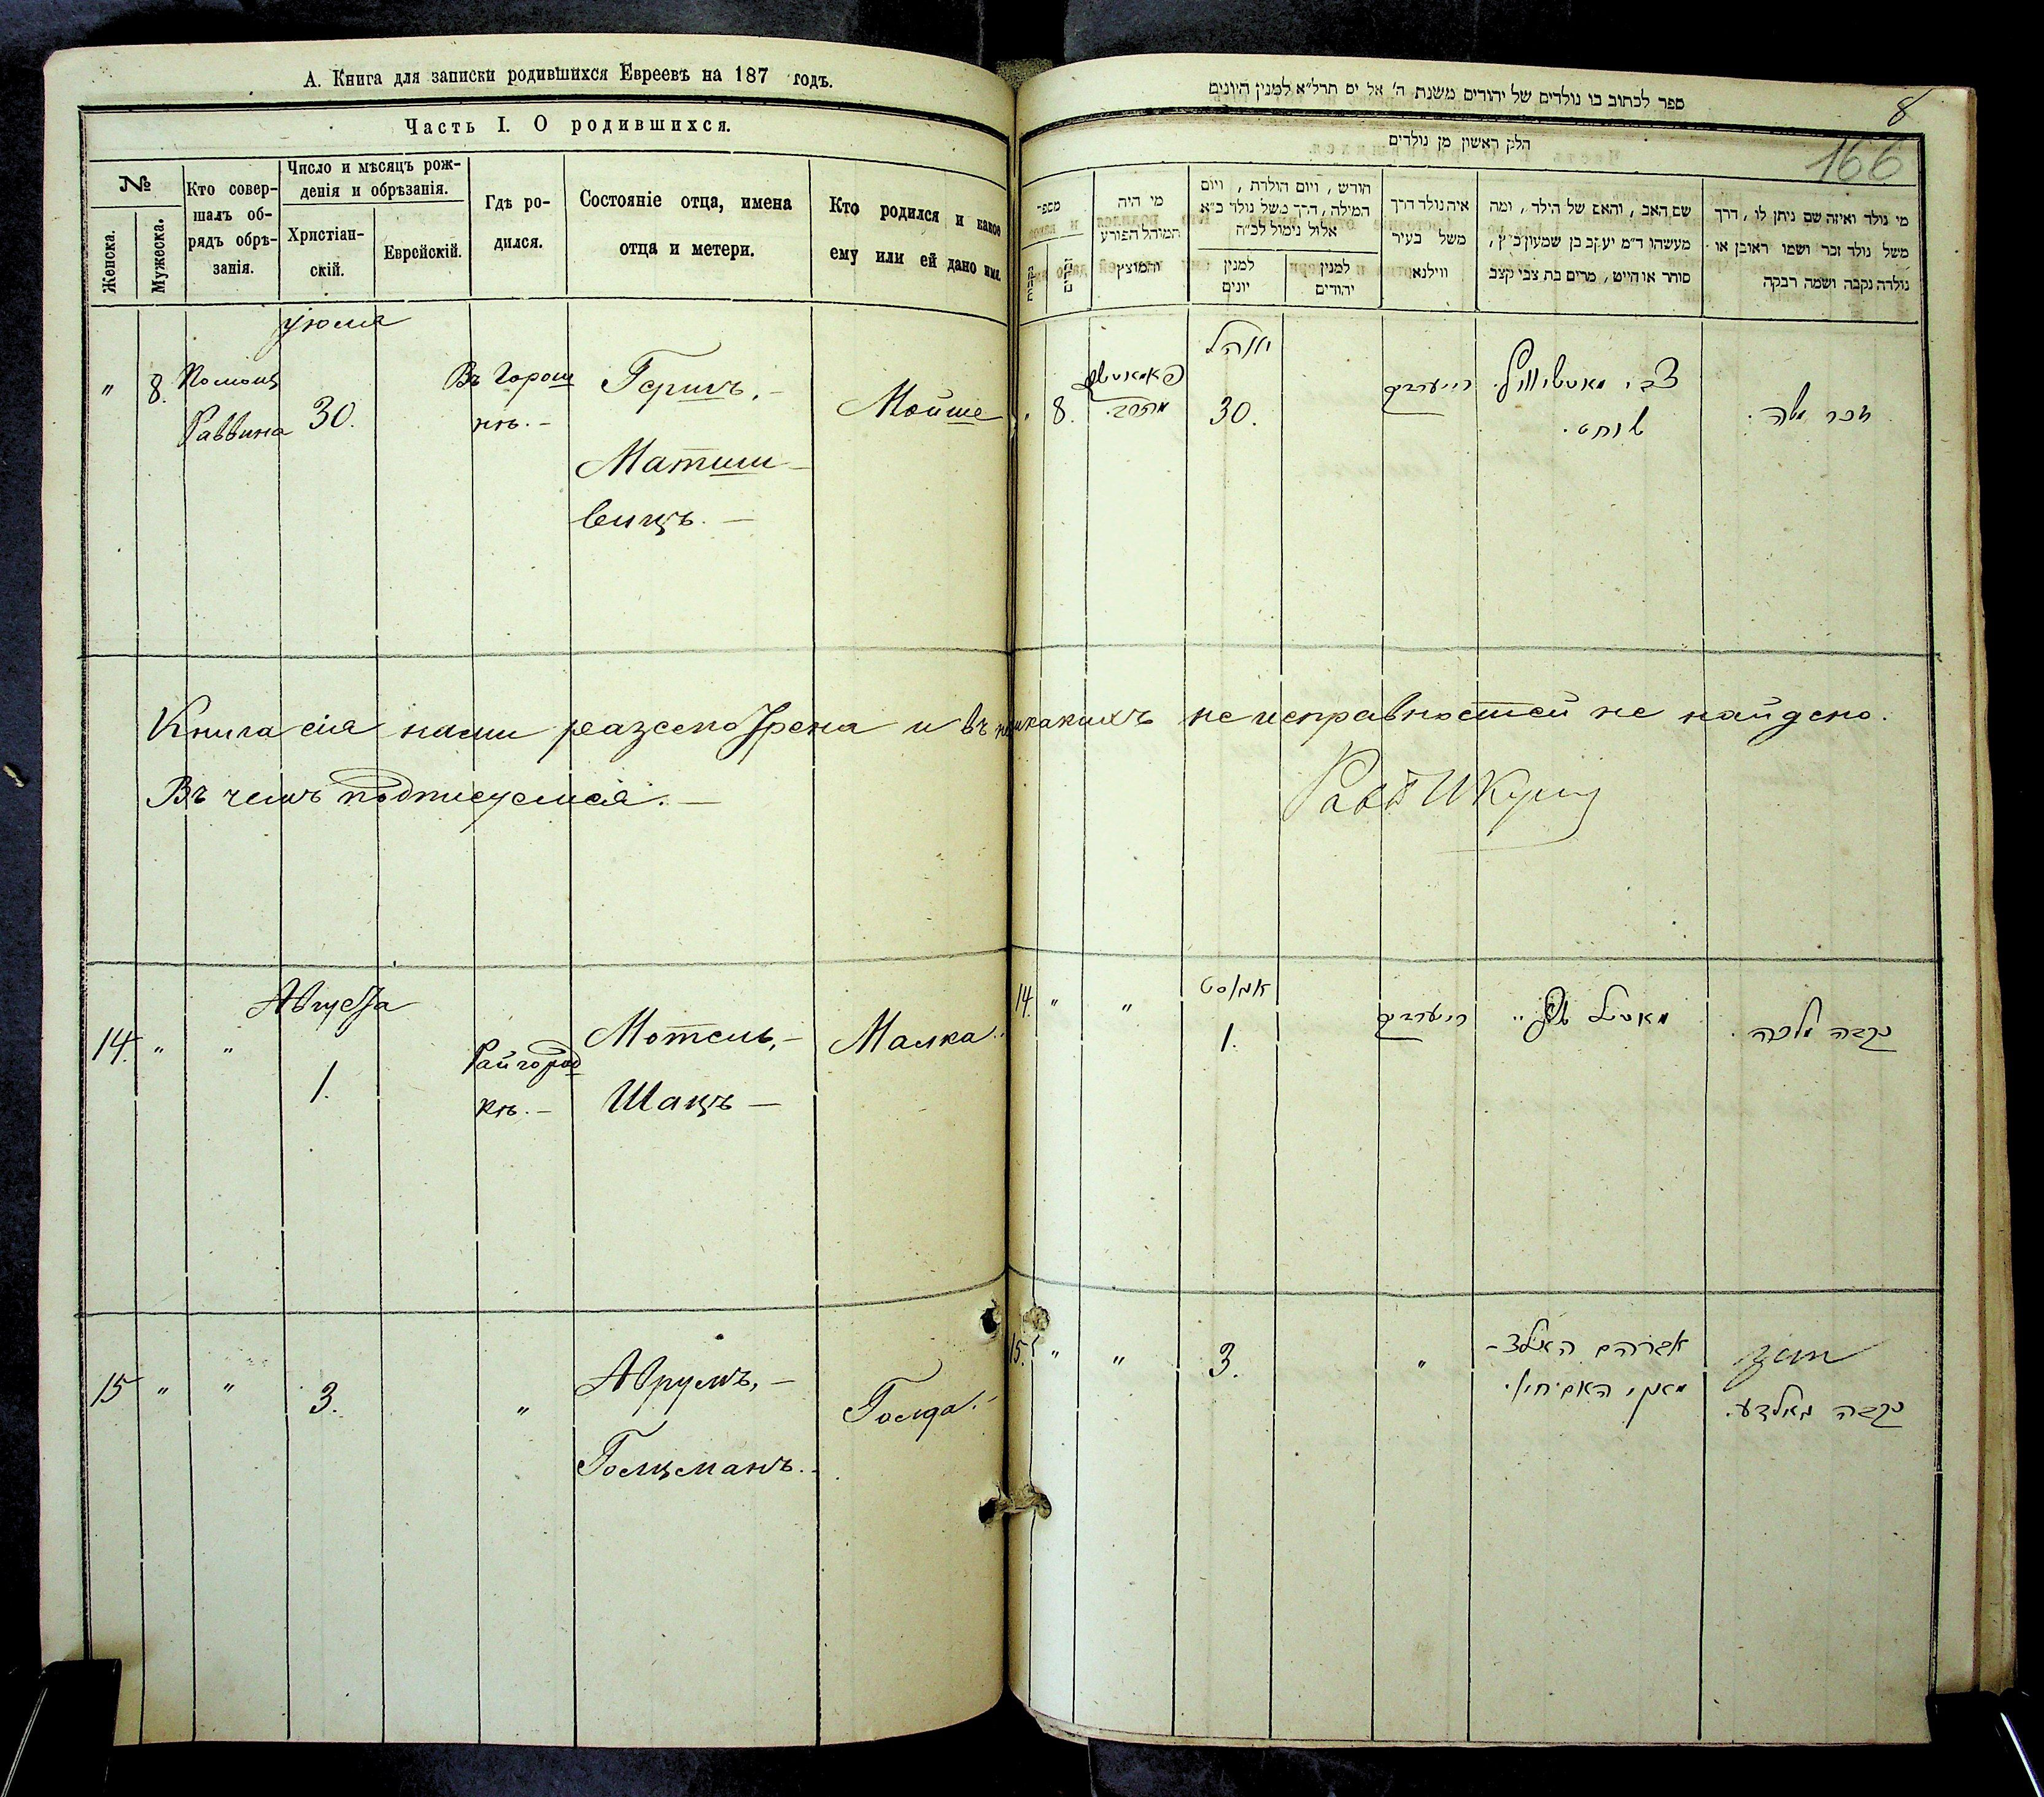 А. Книга для записки родившихся Евреевъ на 187 годъ.
Часть I. О родившихся.
№
Женска.
Мужеска.
Кто совер-
шалъ об-
рядъ обрѣ-
занія.
Число и мѣсяцъ рож-
денія и обрѣзанія.
Христіан-
скій.
Еврейскій.
Гдѣ ро-
дился.
Состояніе отца, имена
отца и метери.
Кто родился и какое
ему или ей дано имя.
Іюля
" 8.
Помощ
Раввина
30.
Въ Горош
кѣ.-
Гершъ,-
Матиши-
вецъ.-
Мойше
Книга сія нами разсмотрена и въ ней никакихъ неисправностей не найдено.
Въ чемъ подписуемся.-
Августа
14. " "
1.
Райгород
кѣ.-
Мотель,-
Шацъ-
Малка.
15 " "
3.
"
Аврумъ,-
Гольцманъ.-
Голда.-
ספר לכתוב בו נולדים של יהודים משנת ה' אל יס תרל״א למנין היונים
8
166
חלק ראשון מן נולדים
מספר
נקבות
זכרים
מי היה
המוהל הפורע
והמוצץ
חודש, ויום הולדת, ויום
המילה, דרך משל נולד כ״א
אלול נימול לכ״ה
למנין
יונים
למנין
יהודים
איה נולד דרך
משל בעיר
ווילנא
שם האב, והאם של הילד, ומה
מעשהו ד״מ יעקב בן שמעון כ״ץ,
סוחר או חייט, מרים בת צבי קצב
מי נולד ואיזה שם ניתן לו, דרך
משל נולד זכר ושמו ראובן או
נולדה נקבה ושמה רבקה
" 8.
יוהל
30.
צבי
שוחט.
זכר משה.
14 " "
אגוסט
1.
נקבה מלכה.
15. " "
3.
"
אברהם האלצ-
מאן
נקבה גאלדע.